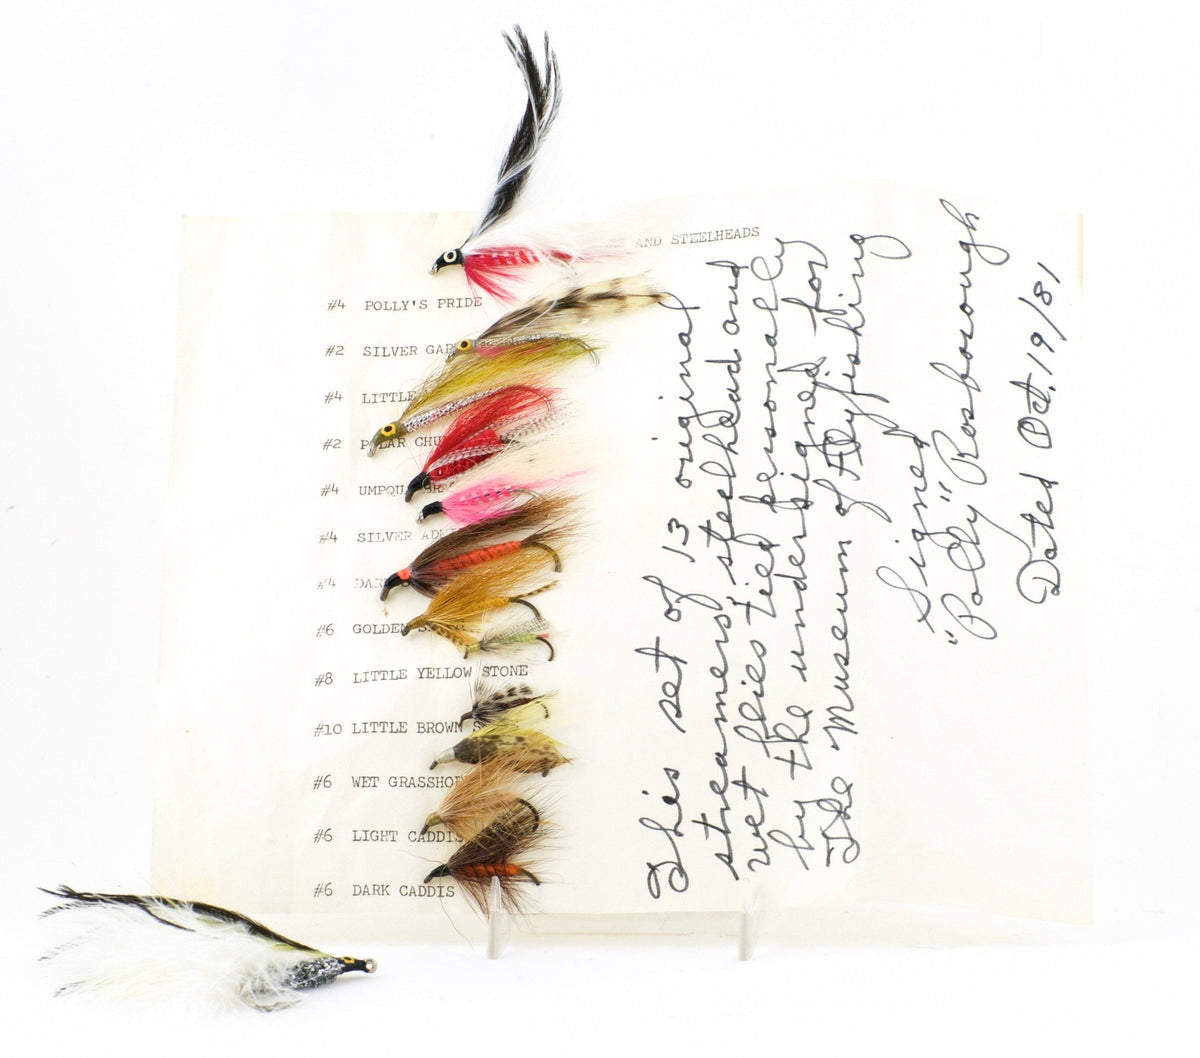 AND STEELHEADS
#4 POLLY'S PRIDE
#2 SILVER GAR
#4 LITTLE
#2 POLAR CHU
#4 UMPQUA
#4 SILVER ADM
#4 DAR
#6 GOLDEN S
#8 LITTLE YELLOW STONE
#10 LITTLE BROWN S
#6 WET GRASSHOP
#6 LIGHT CADDIS
#6 DARK CADDIS
This set of 13 original
streamers, steelhead and
wet flies tied personally
by the undersigned for
The Museum of Flyfishing
Signed
"Polly" Rosborough
Dated Oct. 19/81